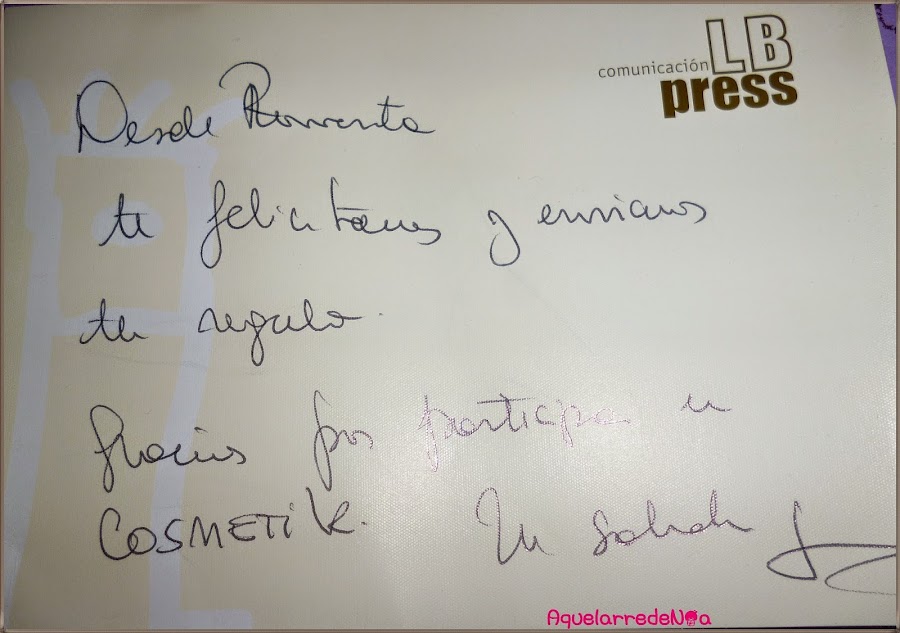 comunicación LB
press
Desde Rowenta
te felicitamos y enviamos
tu regalo.
Gracias por participar en
COSMETIK. Un saludo
AquelarredeNoa